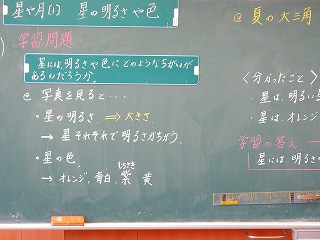 星や月(1) 星の明るさや色
学習問題
星には、明るさや色にどのようなちがいが
あるのだろうか。
@ 写真を見ると…
・星の明るさ ⇒ 大きさ
→ 星それぞれで明るさがちがう。
・星の色
むらさき
→ オレンジ、青白、紫 黄
@ 夏の大三角
<分かったこと>
・星は、明るい星
・星は、オレン
学習の答え
星には、明るさ